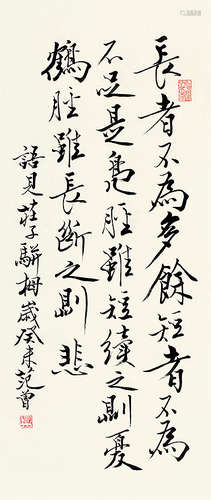 長者不為多餘短者不為
不足是鳧脛雖短續之則憂
鶴脛雖長斷之則悲
語見莊子駢拇歲癸未范曾